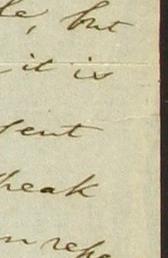 le, but
it is
sent
peak
n repe